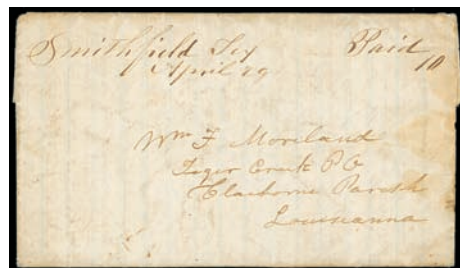 Smithfield Tex
Paid
April 29
10
Wm F. Moreland
Tiger Creek P O
Claiborne Parish
Louisianna